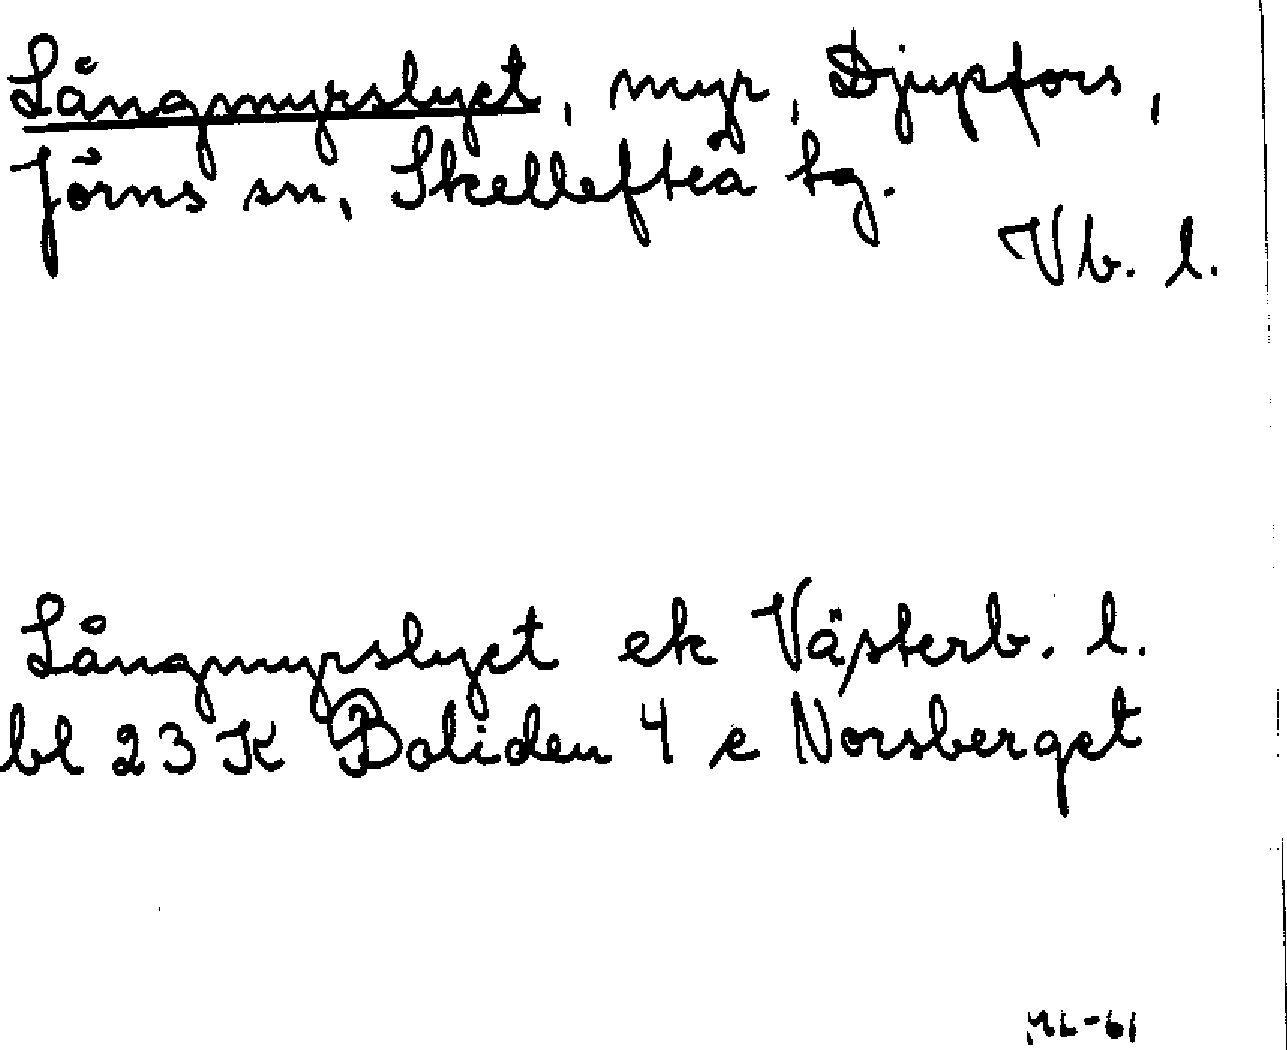 Långmyrslyet, myr, Djupfors,
Jörns sn, Skellefteå tg.
Vb. l.
Långmyrslyet ek Västerb. l.
bl 23 K Boliden 4 e Norsberget
ML-61